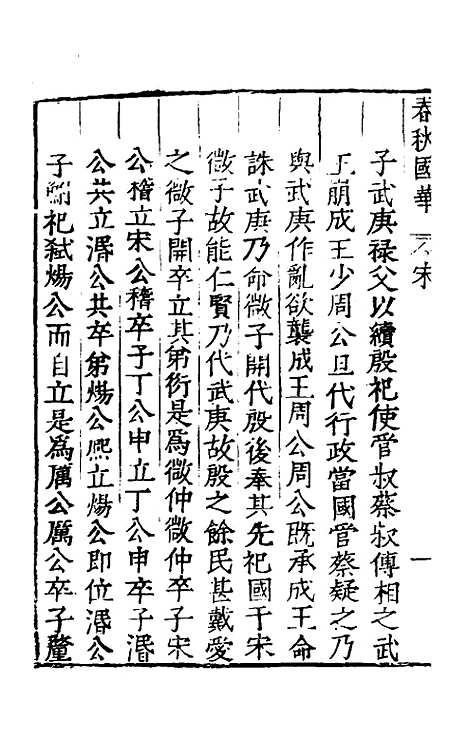 春秋國華 宋 一
子武庚禄父以續殷祀使管叔蔡叔傅相之武
王崩成王少周公旦代行政當國管蔡疑之乃
與武庚作亂欲襲成王周公周公既承成王命
誅武庚乃命微子開代殷後奉其先祀國于宋
微子故能仁賢乃代武庚故殷之餘民甚戴愛
之微子開卒立其弟衍是爲微仲微仲卒子宋
公稽立宋公稽卒子丁公申立丁公申卒子湣
公共立湣公共卒弟煬公熙立煬公即位湣公
子鮒祀弑煬公而自立是爲厲公厲公卒子釐